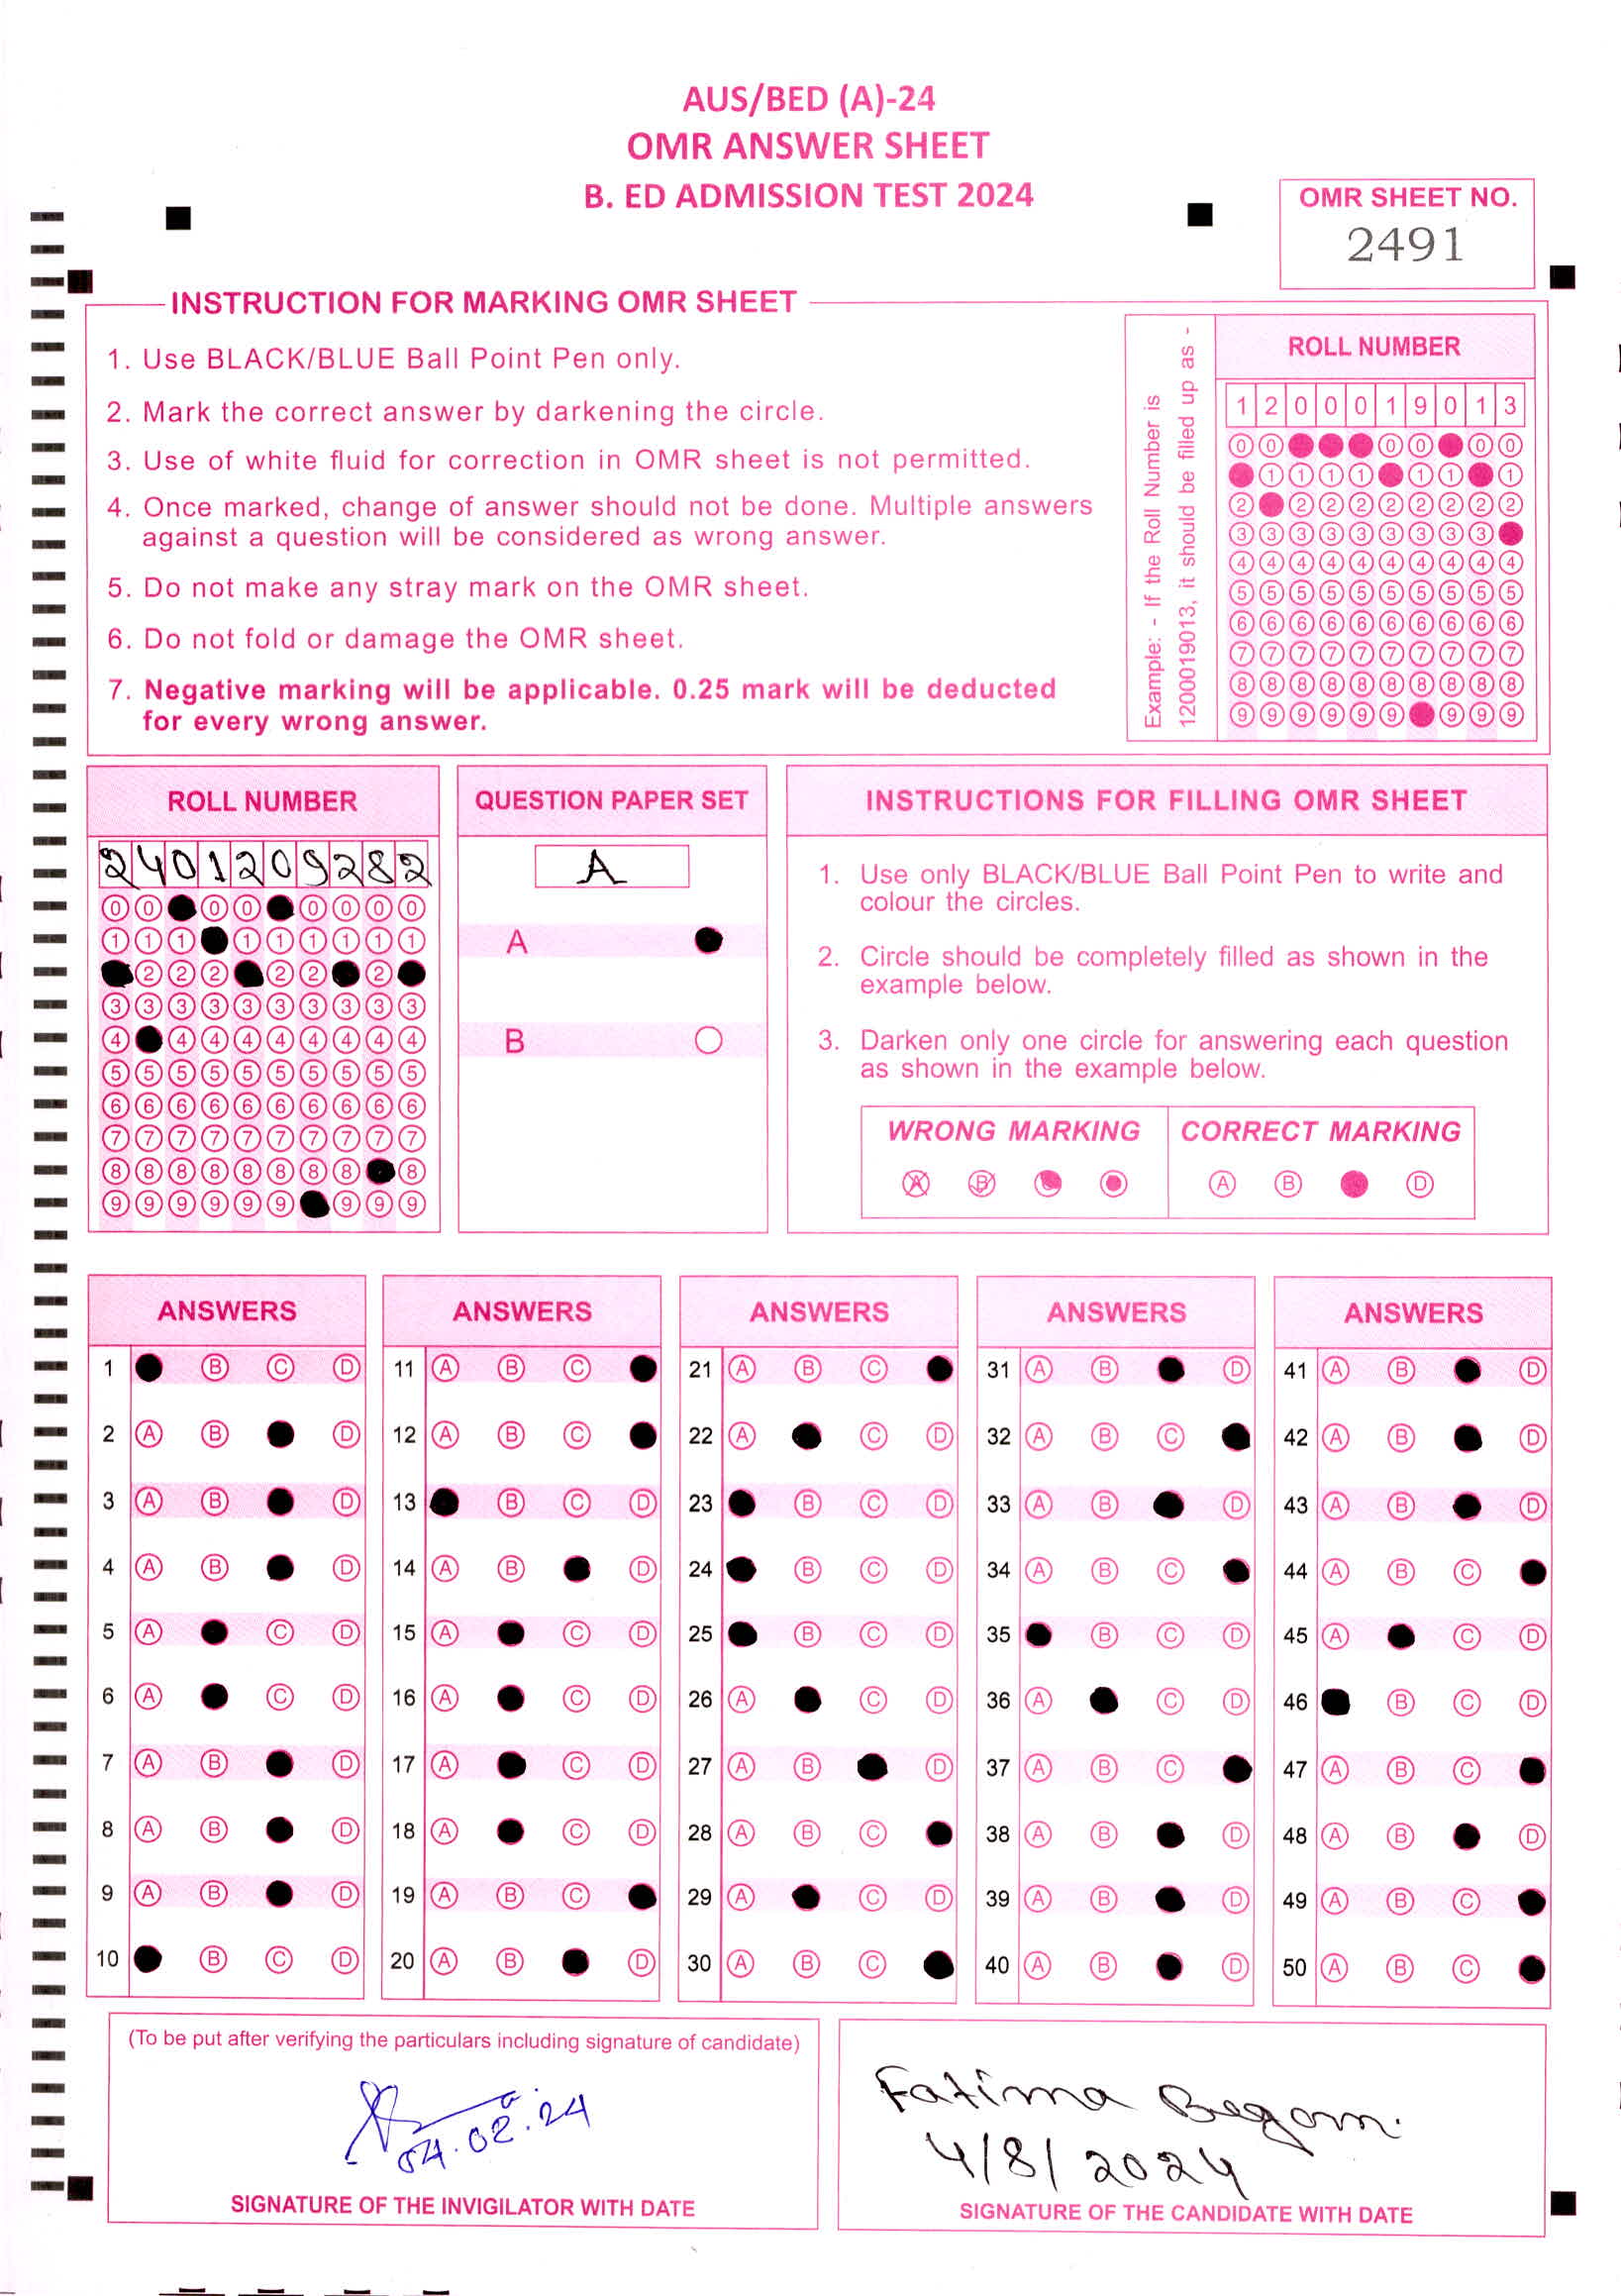 AUS/BED (A)-24
OMR ANSWER SHEET
B. ED ADMISSION TEST 2024
OMR SHEET NO.
2491
INSTRUCTION FOR MARKING OMR SHEET
1. Use BLACK/BLUE Ball Point Pen only.
2. Mark the correct answer by darkening the circle.
3. Use of white fluid for correction in OMR sheet is not permitted.
4. Once marked, change of answer should not be done. Multiple answers
against a question will be considered as wrong answer.
5. Do not make any stray mark on the OMR sheet.
6. Do not fold or damage the OMR sheet.
7. Negative marking will be applicable. 0.25 mark will be deducted
for every wrong answer.
Example: - If the Roll Number is
1200019013, it should be filled up as -
ROLL NUMBER
1 2 0 0 0 1 9 0 1 3
0 0 0 0 0 0
1 1 1 1 1 1 1
2 2 2 2 2 2 2 2 2
3 3 3 3 3 3 3 3 3
4 4 4 4 4 4 4 4 4 4
5 5 5 5 5 5 5 5 5 5
6 6 6 6 6 6 6 6 6 6
7 7 7 7 7 7 7 7 7 7
8 8 8 8 8 8 8 8 8 8
9 9 9 9 9 9 9 9 9
ROLL NUMBER
2 4 0 1 2 0 9 2 8 2
0 0 0 0 0 0 0 0
1 1 1 1 1 1 1 1 1
2 2 2 2 2 2
3 3 3 3 3 3 3 3 3 3
4 4 4 4 4 4 4 4 4
5 5 5 5 5 5 5 5 5 5
6 6 6 6 6 6 6 6 6 6
7 7 7 7 7 7 7 7 7 7
8 8 8 8 8 8 8 8 8
9 9 9 9 9 9 9 9 9
QUESTION PAPER SET
A
A
B
INSTRUCTIONS FOR FILLING OMR SHEET
1. Use only BLACK/BLUE Ball Point Pen to write and
colour the circles.
2. Circle should be completely filled as shown in the
example below.
3. Darken only one circle for answering each question
as shown in the example below.
WRONG MARKING
A B
CORRECT MARKING
A B D
ANSWERS
1 B C D
2 A B D
3 A B D
4 A B D
5 A C D
6 A C D
7 A B D
8 A B D
9 A B D
10 B C D
ANSWERS
11 A B C
12 A B C
13 B C D
14 A B D
15 A C D
16 A C D
17 A C D
18 A C D
19 A B C
20 A B D
ANSWERS
21 A B C
22 A C D
23 B C D
24 B C D
25 B C D
26 A C D
27 A B D
28 A B C
29 A C D
30 A B C
ANSWERS
31 A B D
32 A B C
33 A B D
34 A B C
35 B C D
36 A C D
37 A B C
38 A B D
39 A B D
40 A B D
ANSWERS
41 A B D
42 A B D
43 A B D
44 A B C
45 A C D
46 B C D
47 A B C
48 A B D
49 A B C
50 A B C
(To be put after verifying the particulars including signature of candidate)
04.02.24
SIGNATURE OF THE INVIGILATOR WITH DATE
Fatima Begom.
4/8/2024
SIGNATURE OF THE CANDIDATE WITH DATE